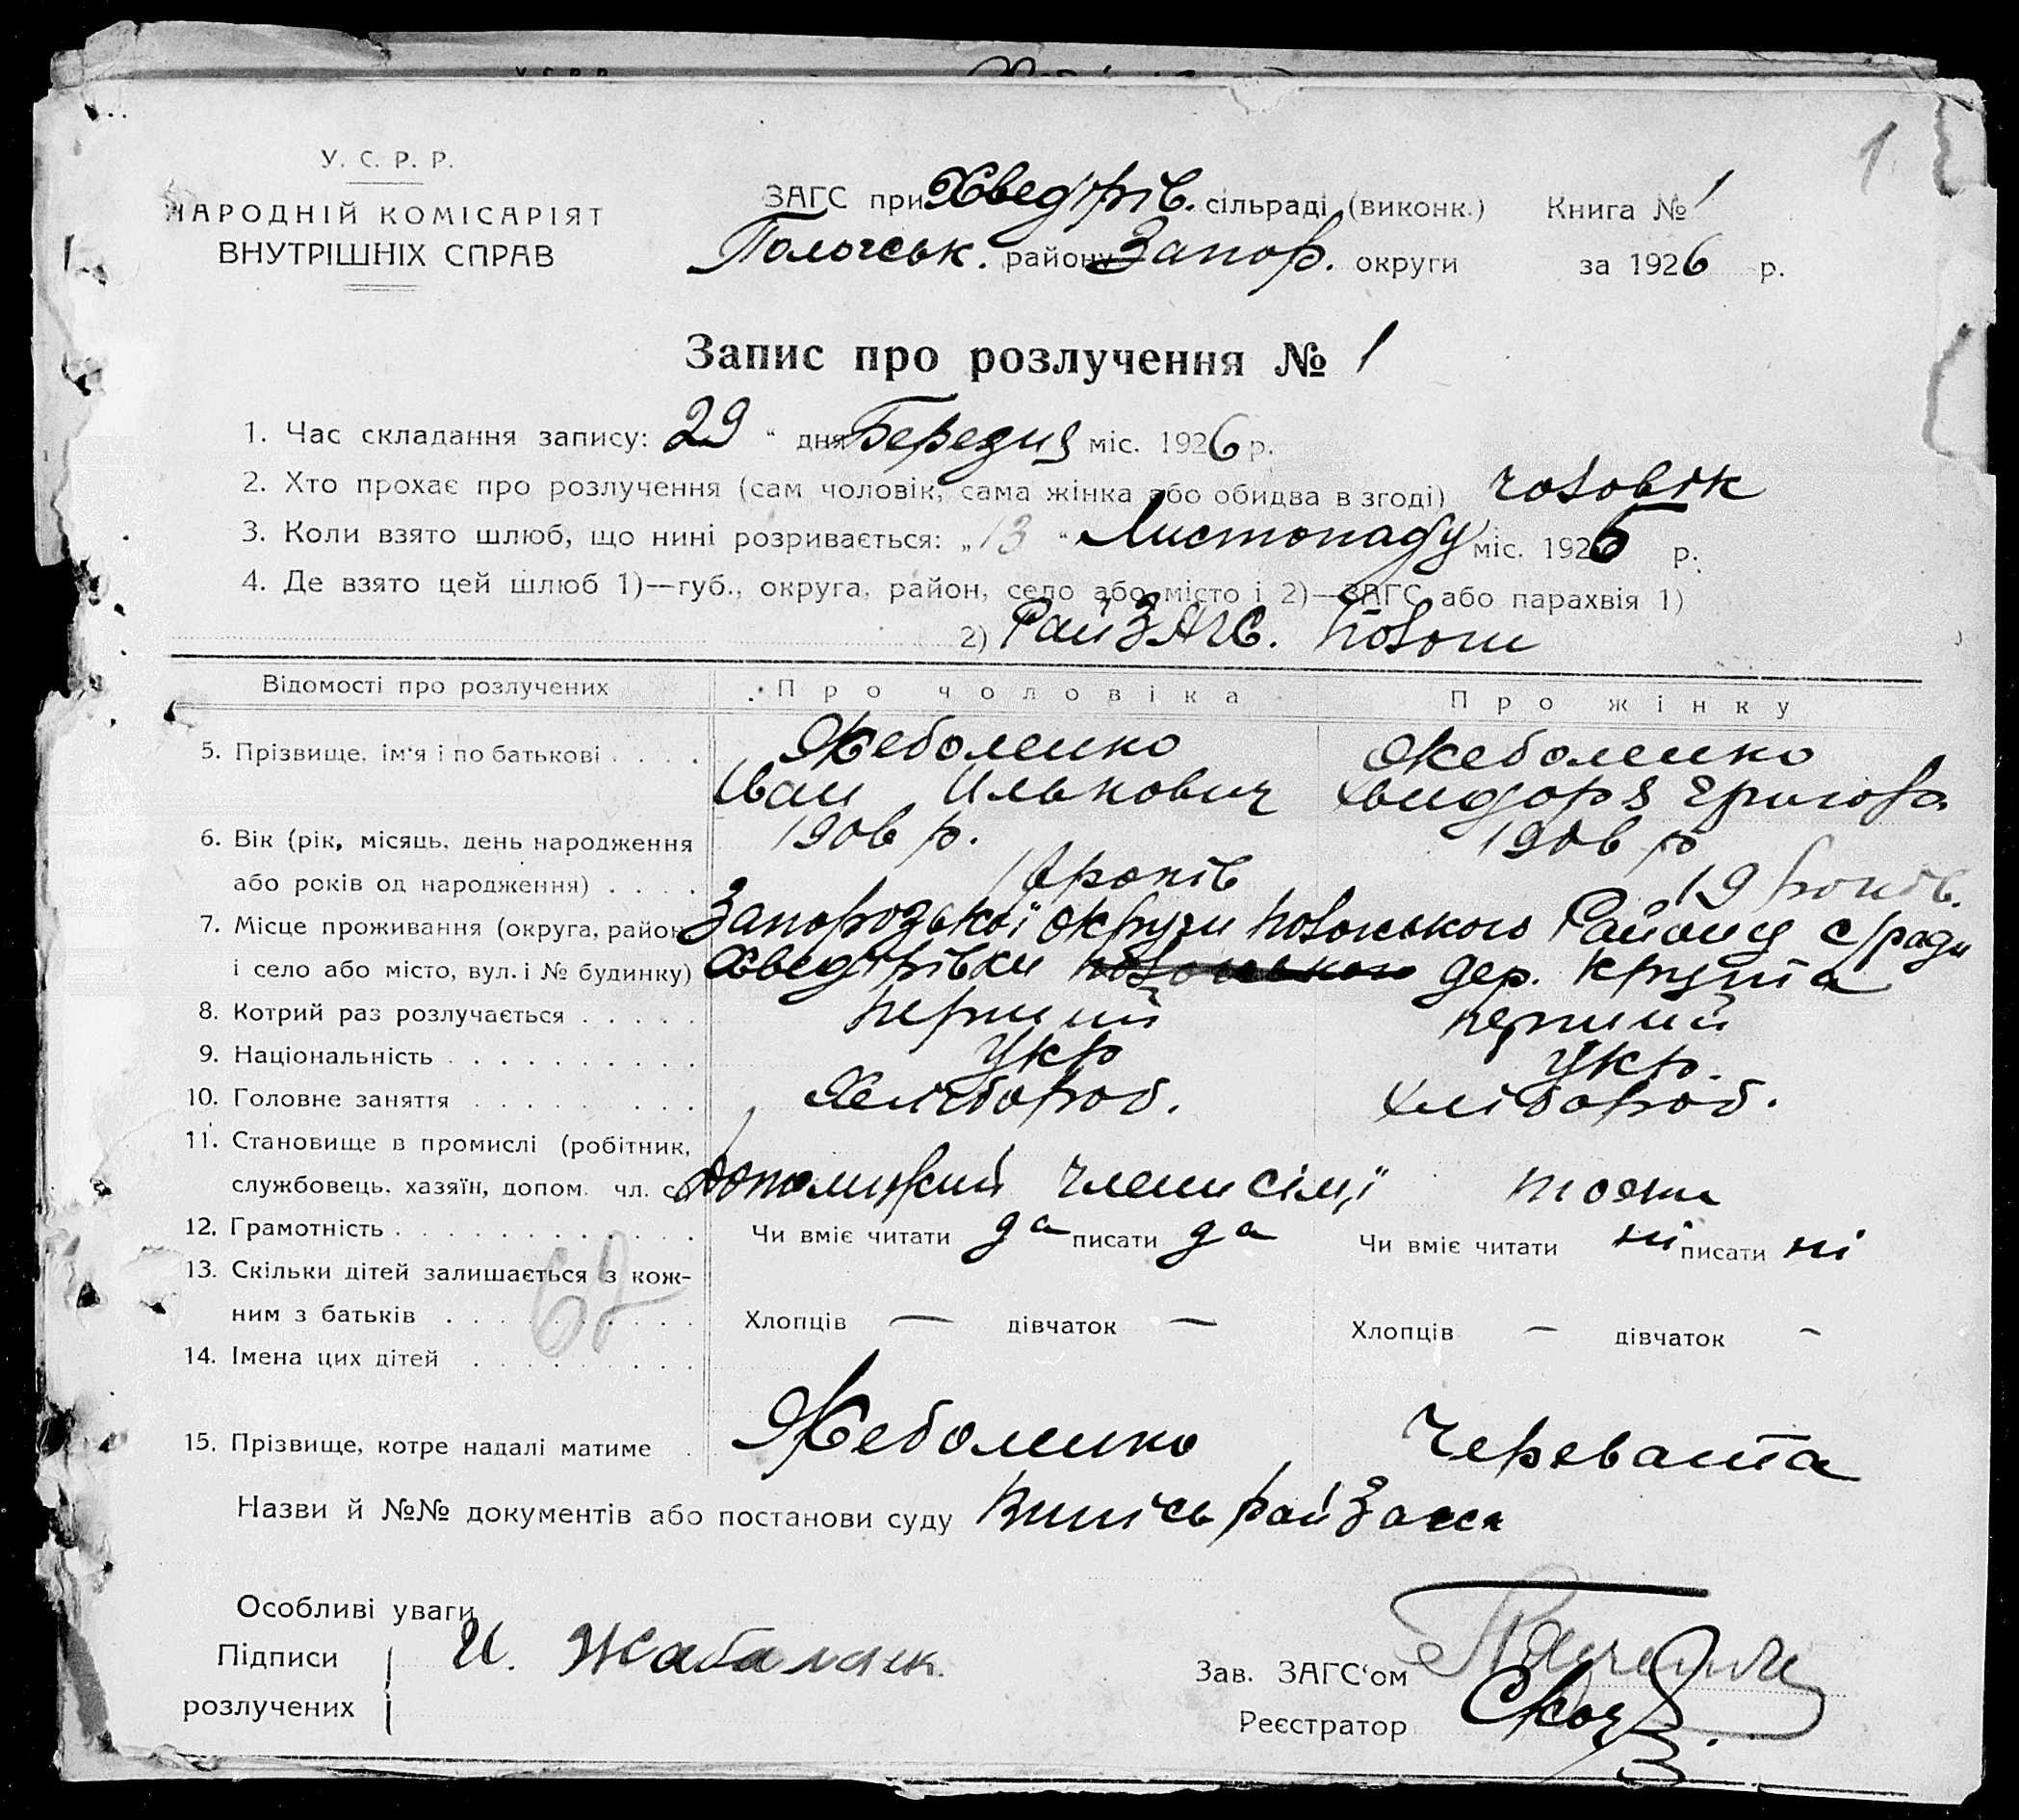 У. С. Р. Р.
НАРОДНІЙ КОМІСАРІЯТ
ВНУТРІШНІХ СПРАВ
ЗАГС при Хведорів. сільраді (виконк.) Книга № 1
Пологськ. району Запор. округи за 1926 р.
1
Запис про розлучення № 1
1. Час складання запису: 29 " дня Березня міс. 1926 р.
2. Хто прохає про розлучення (сам чоловік, сама жінка або обидва в згоді) чоловік
3. Коли взято шлюб, що нині розривається: „13 " Листопаду міс. 1925 р.
4. Де взято цей шлюб 1)—губ., округа, район, село або місто і 2)—ЗАГС або парахвія 1)
2) РайЗАГС. Пологи
Відомості про розлучених Про чоловіка Про жінку
5. Прізвище, ім'я і по батькові . . . . Жеболенко Жеболенко
Іван Илькович Хвидоря Григоров
6. Вік (рік, місяць, день народження 1906 р. 1906 р
або років од народження) . . . . років 19 років.
7. Місце проживання (округа, район Запорозької округи Пологського Району с/ради
і село або місто, вул. і № будинку) Хведорівки дер. Крута
8. Котрий раз розлучається . . . . . перший перший
9. Національність . . . . . . . . . . Укр Укр.
10. Головне заняття . . . . . . . . . Хлібороб. Хлібороб.
11. Становище в промислі (робітник,
службовець, хазяїн, допом. чл. с. член сімї тоже
12. Грамотність . . . . . . . . . . . . Чи вміє читати да писати да Чи вміє читати ні писати ні
13. Скільки дітей залишається з кож-
ним з батьків . . . . . . . . . . Хлопців — дівчаток — Хлопців — дівчаток —
62
14. Імена цих дітей . . . . . . . . .
15. Прізвище, котре надалі матиме . Жеболенко Черевата
Назви й №№ документів або постанови суду Випісь райЗагса
Особливі уваги
Підписи И. Жабаленк.
розлучених
Зав. ЗАГС'ом
Реєстратор